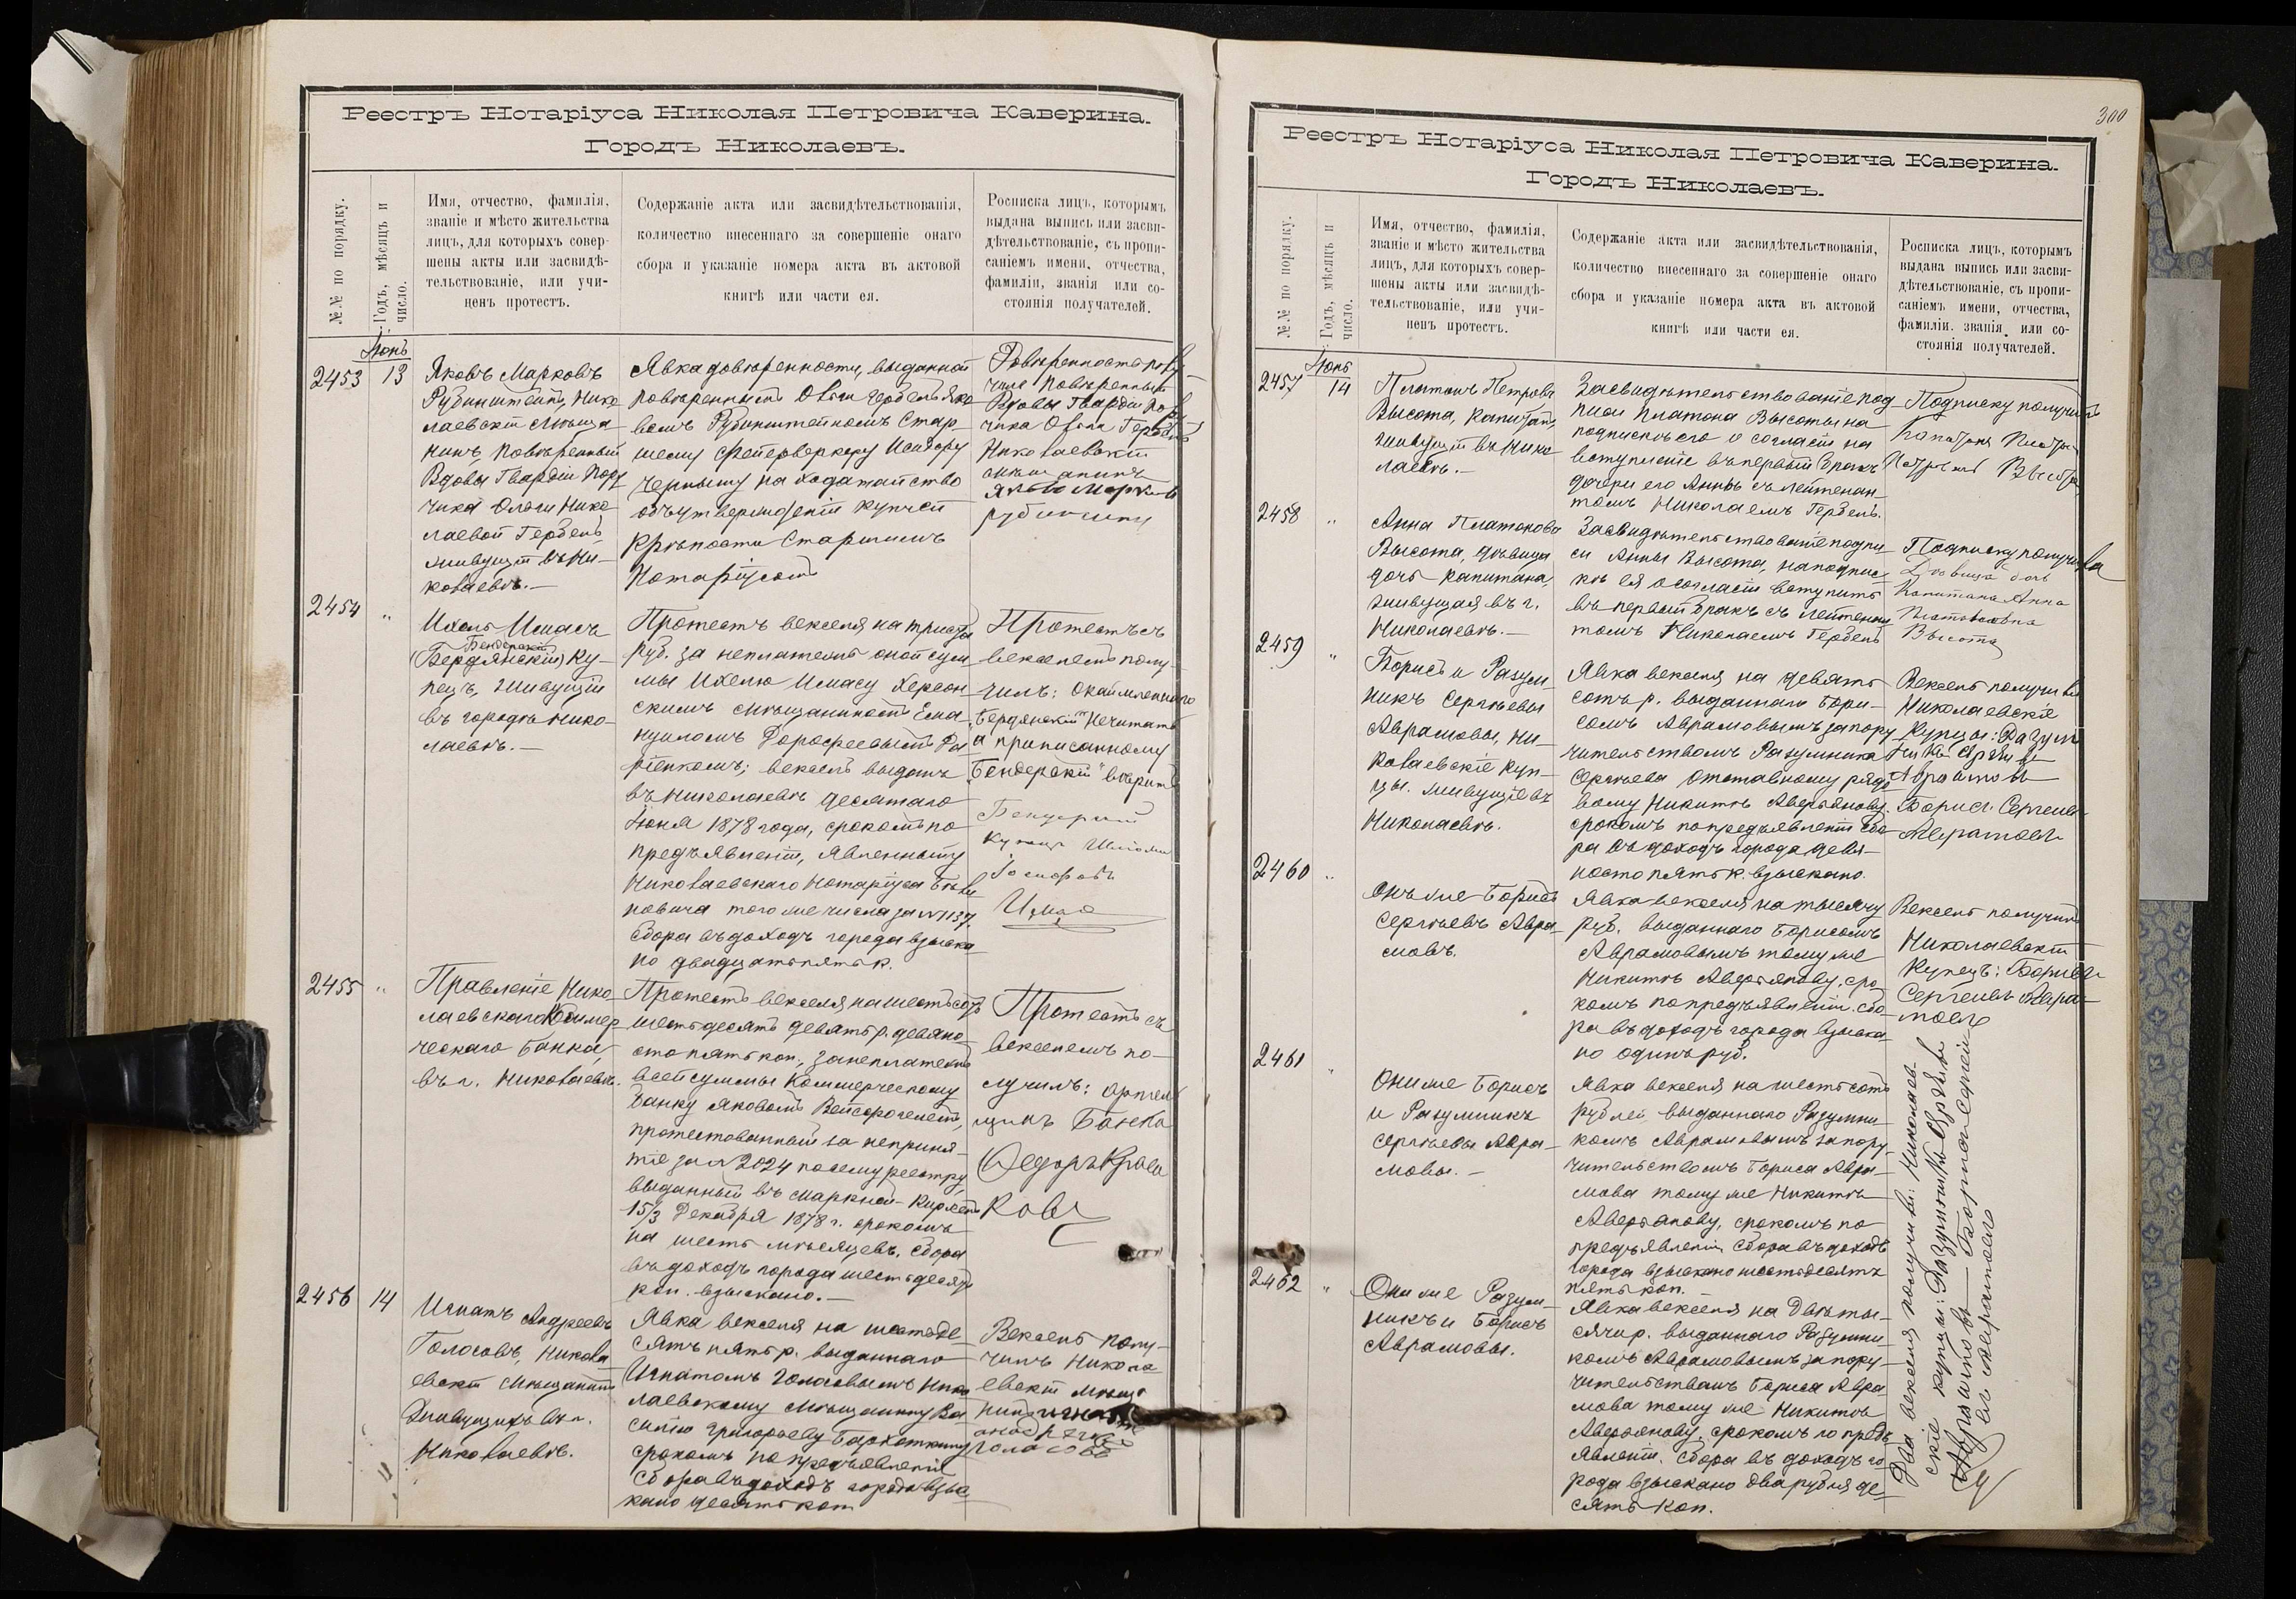 Реестръ Нотаріуса Николая Петровича Каверина.
Городъ Николаевъ.
№№ по порядку.
Годъ, мѣсяцъ и
число.
Имя, отчество, фамилія,
званіе и мѣсто жительства
лицъ, для которыхъ совер-
шены акты или засвидѣ-
тельствованіе, или учи-
ненъ протестъ.
Содержаніе акта или засвидѣтельствованія,
количество внесеннаго за совершеніе онаго
сбора и указаніе номера акта въ актовой
книгѣ или части ея.
Росписка лицъ, которымъ
выдана выпись или засви-
дѣтельствованіе, съ пропи-
саніемъ имени, отчества,
фамиліи, званія или со-
стоянія получателей.
Іюнь
2453
13
Яковъ Марковъ
Рубинштейнъ, Нико
лаевскій мѣща
нинъ, повѣренный
Вдовы Гвардіи Пору
чика Ольги Нико
лаевой Гербель
живущій въ Ни-
колаевѣ.—
Явка довѣренности, выданной
повѣреннымъ Ольги Гербель Яко
вомъ Рубинштейномъ Стар
шему фейерверкеру
на ходатайство
объ утвержденіи купчей
крѣпости Старшимъ
Нотаріусомъ
Довѣренность полу-
чилъ повѣренный
Вдовы Гвардіи Пору
чика Ольги Гербель
Николаевскій
мѣщанинъ
Яковъ Марковъ
2454
"
Ихель Имасъ
Бендерскій
(Бердянскій) ку-
пецъ, живущій
въ городѣ Нико-
лаевѣ.—
Протестъ векселя на триста
руб. за неплатежъ оной сум
мы Ихелю Имасу Херсон
скимъ мѣщаниномъ Ема
нуиломъ Дорофеевымъ
вексель выданъ
въ Николаевѣ десятаго
Іюня 1878 года, срокомъ по
предъявленіи, явленному
Николаевскаго Нотаріуса
новича того же числа за № 1137
сбора въ доходъ города взыска
но двадцать пять к.
Протестъ съ
векселемъ полу-
чилъ: окаймленнаго
"Бердянскій" не читать
а приписанному
"Бендерскій" вѣрить
Бендерскій
купецъ
Имасъ
2455
"
Правленіе Нико
лаевскаго Коммер
ческаго Банка,
въ г. Николаевѣ.
Протестъ векселя на шестьсотъ
шестьдесятъ девять р. девяно
сто пять коп., за неплатежъ
всей суммы Коммерческому
Банку Яковомъ
протестованный за неприня-
тіе за № 2024 по сему реестру,
выданный въ
15/3 Декабря 1878 г. срокомъ
на шесть мѣсяцевъ. сбора
въ доходъ города шестьдесятъ
коп. взыскано.—
Протестъ съ
векселемъ по-
лучилъ: артель
щикъ Банка
Федоръ
2456
14
Игнатъ Андреевъ
Голосовъ, Никола
евскій мѣщанинъ
живущій въ г.
Николаевѣ.
Явка векселя на шестьде
сятъ пять р. выданнаго
Игнатомъ Голосовымъ Нико
лаевскому мѣщанину Ва
силію Григорьеву
срокомъ по предъявленіи
сбора въ доходъ города взы
кано десять коп
Вексель полу-
чилъ Никола
евскій мѣща
нинъ Игнатъ
Голосовъ
300
Реестръ Нотаріуса Николая Петровича Каверина.
Городъ Николаевъ.
№№ по порядку.
Годъ, мѣсяцъ и
число.
Имя, отчество, фамилія,
званіе и мѣсто жительства
лицъ, для которыхъ совер-
шены акты или засвидѣ-
тельствованіе, или учи-
ненъ протестъ.
Содержаніе акта или засвидѣтельствованія,
количество внесеннаго за совершеніе онаго
сбора и указаніе номера акта въ актовой
книгѣ или части ея.
Росписка лицъ, которымъ
выдана выпись или засви-
дѣтельствованіе, съ пропи-
саніемъ имени, отчества,
фамиліи. званія или со-
стоянія получателей.
Іюнь
2457
14
Платонъ Петровъ
Высота, Капитанъ,
живущій въ Нико
лаевѣ.—
Засвидѣтельствованіе под
писи Платона Высоты на
подпискѣ его о согласіи на
вступленіе въ первый бракъ
дочери его Анны съ лейтенан
томъ Николаемъ Гербель.
Подписку получилъ
Капитанъ Платонъ
Петровъ Высота
2458
"
Анна Платонова
Высота, дѣвица
дочь капитана,
живущая въ г.
Николаевѣ.—
Засвидѣтельствованіе подпи
си Анны Высота, на подпис
кѣ ея о согласіи вступить
въ первый бракъ съ лейтенан
томъ Николаемъ Гербель
Подписку получила
Дѣвица дочь
Капитана Анна
Платоновна
Высота
2459
"
Борисъ и Разум-
никъ Сергѣевы
Аврамовы, Ни-
колаевскіе куп-
цы. живущіе въ
Николаевѣ.
Явка векселя на девять
сотъ р. выданнаго Бори-
сомъ Аврамовымъ за пору
чительствомъ Разумника
Сергѣева отставному рядо
вому Никитѣ Аверьянову
срокомъ по предъявленіи сбо
ра въ доходъ города девя-
носто пять к. взыскано.
Вексель получили
Николаевскіе
Купцы: Разум
никъ Сергѣевъ
Аврамовъ
Борисъ Сергеевъ
Аврамовъ
2460
"
Онъ же Борисъ
Сергѣевъ Авра-
мовъ.
Явка векселя на тысячу
руб. выданнаго Борисомъ
Аврамовымъ тому же
Никитѣ Аверьянову, сро
комъ по предъявленіи. сбо
ра въ доходъ города взыска
но одинъ руб.
Вексель получилъ
Николаевскій
Купецъ: Борисъ
Сергеевъ Авра-
мовъ
2461
"
Они же Борисъ
и Разумникъ
Сергѣевы Авра-
мовы.—
Явка векселя на шестьсотъ
рублей, выданнаго Разумни
комъ Аврамовымъ за пору-
чительствомъ Бориса Авра-
мова тому же Никитѣ
Аверьянову, срокомъ по
предъявленіи, сбора въ доходъ
города взыскано шестьдесятъ
пять коп.
2462
"
Они же Разум-
никъ и Борисъ
Аврамовы.
Явка векселя на двѣ ты-
сячи р. выданнаго Разумни
комъ Аврамовымъ за пору-
чительствомъ Бориса Авра
мова тому же Никитѣ
Аверьянову, срокомъ по предъ
явленіи. сбора въ доходъ го-
рода взыскано два рубля де-
сять коп.
Два векселя получили: Николаев-
скіе купцы: Разумникъ Сергѣевъ
Аврамовъ — Борисъ Сергѣ
евъ Аврамовъ